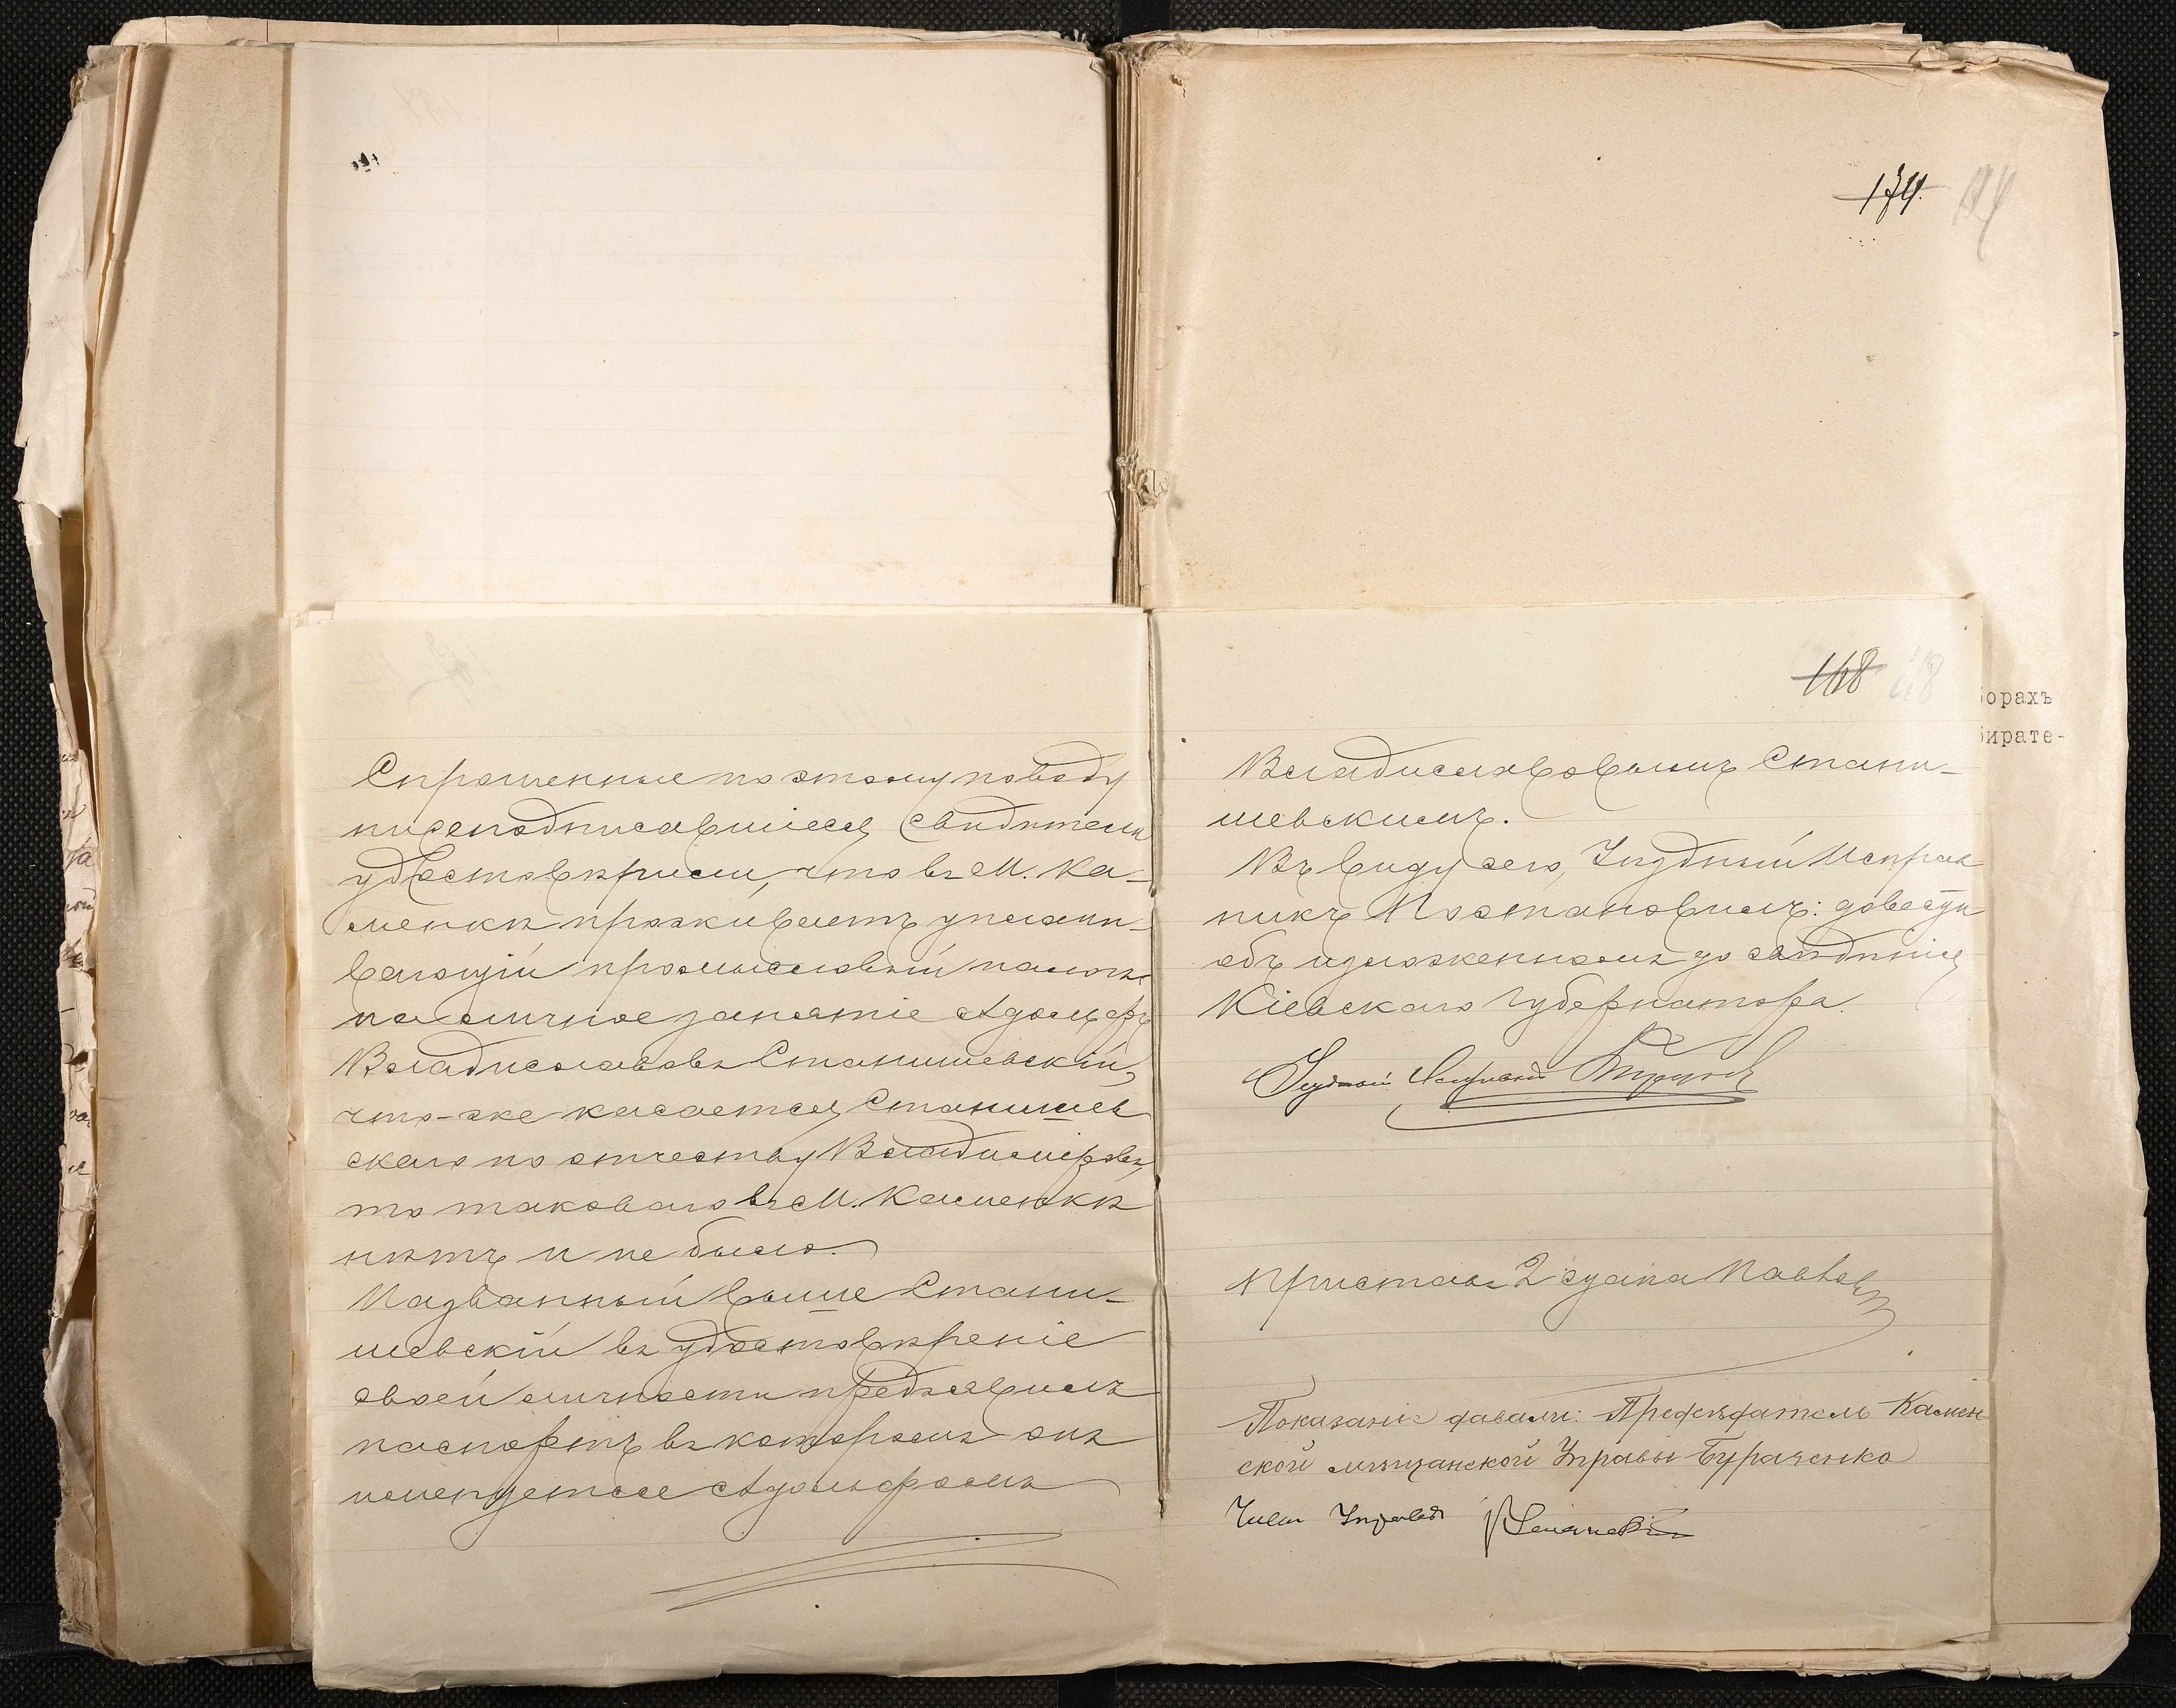 Спрошенные по этому поводу
нижеподписавшіеся свидѣтели
удостовѣрили, что въ М. Ка-
менкѣ проживаетъ уплачи-
вающій промысловый налогъ
на личное занятіе Адольфъ
Владиславовъ Станишевскій,
что-же касается Станишев
скаго по отчеству Владиміровъ,
то таковаго въ М. Каменкѣ
нѣтъ и не было.
Названный выше Стани-
шевскій въ удостовѣреніе
своей личности предъявилъ
паспортъ въ которомъ онъ
именуется Адольфомъ
174.
148
борахъ
бирате-
Владиславовымъ Стани-
шевскимъ.
Въ виду сего, Уѣздный Исправ
никъ Постановилъ: довести
объ изложенномъ до свѣдѣнія
Кіевскаго Губернатора.
Уѣздный Исправникъ
Приставъ 2 стана
Показаніе давали: Предсѣдатель Камен
ской мѣщанской Управы Бураченко
Членъ Управы